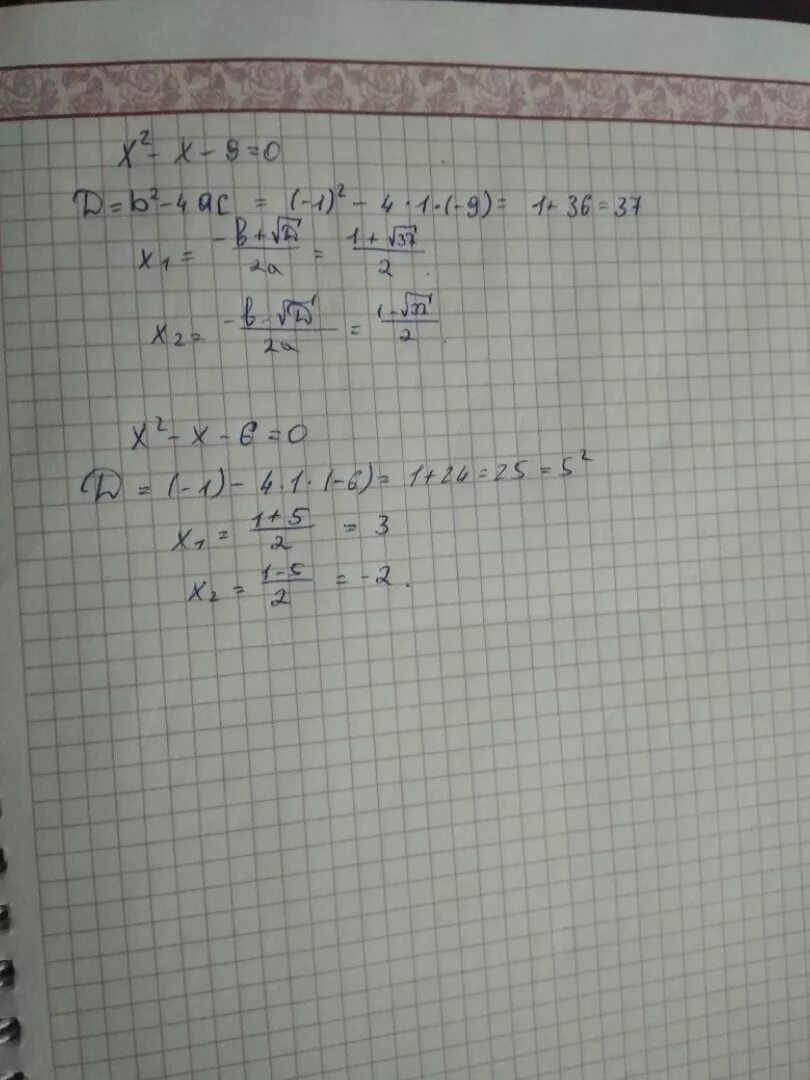 x² - x - 9 = 0
D = b² - 4ac = (-1)² - 4·1·(-9) = 1 + 36 = 37
x₁ = (-b + √D)/2a = (1 + √37)/2
x₂ = (-b - √D)/2a = (1 - √37)/2
x² - x - 6 = 0
D = (-1) - 4·1·(-6) = 1 + 24 = 25 = 5²
x₁ = (1 + 5)/2 = 3
x₂ = (1 - 5)/2 = -2.